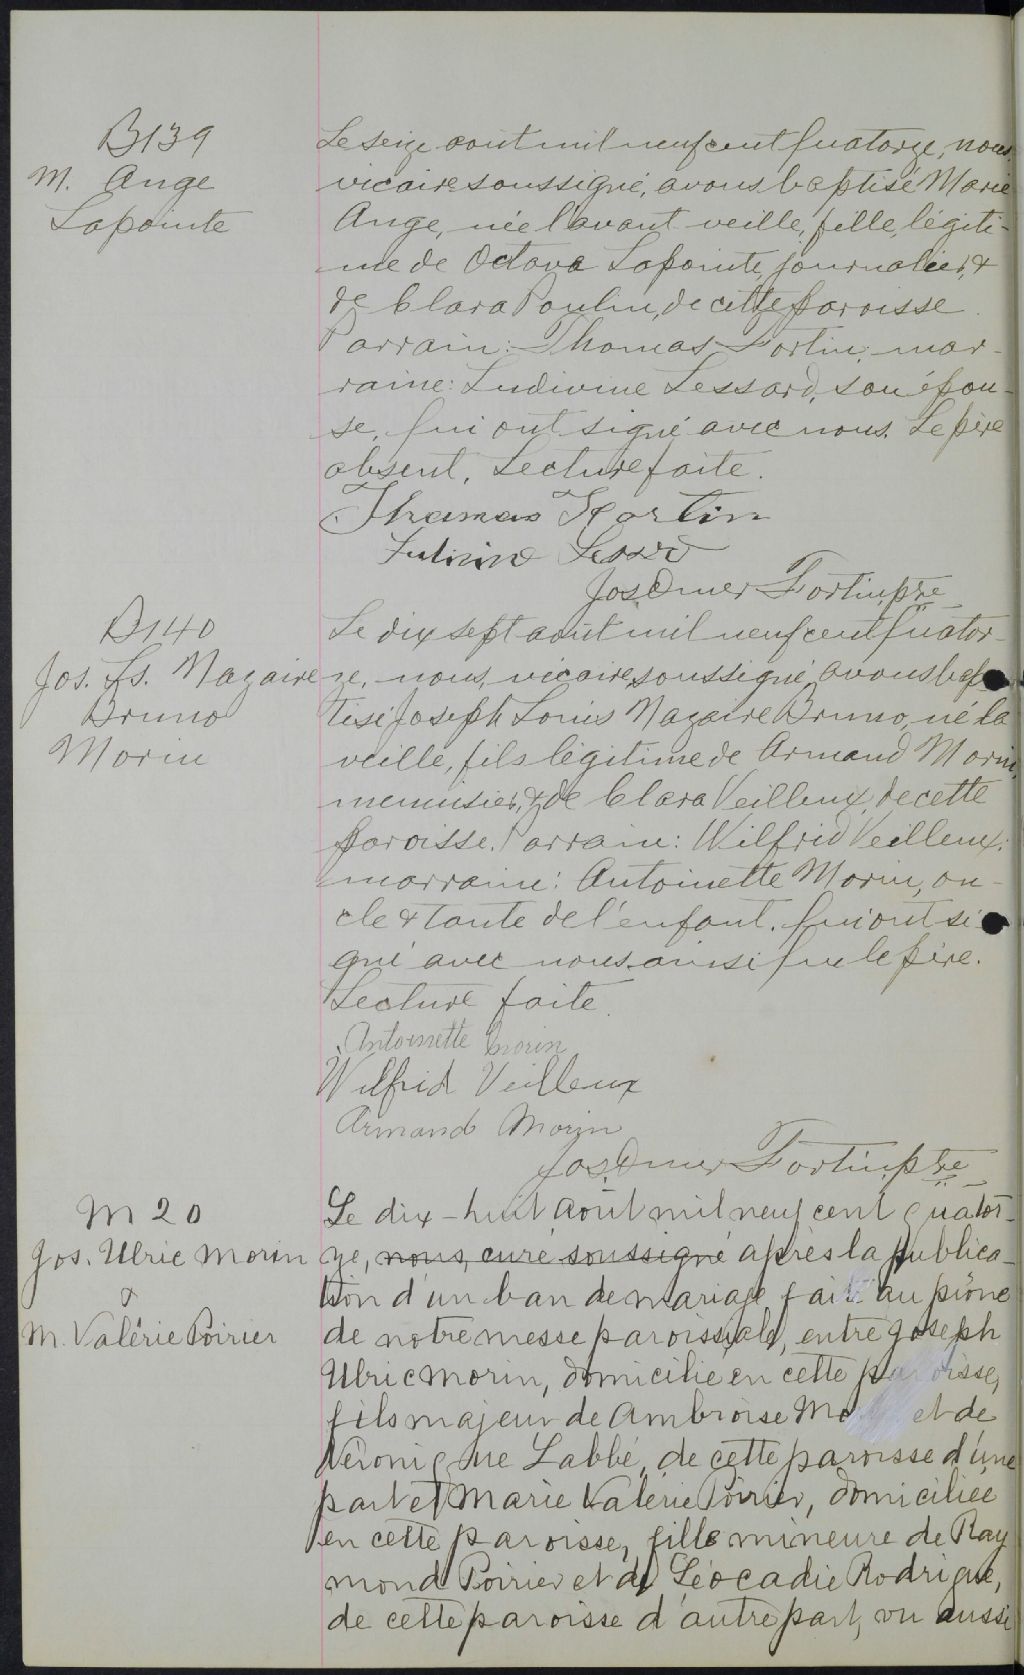 B139
M. Ange
Lapointe
Le seize août mil neuf cent quatorze, nous,
vicaire soussigné, avons baptisé Marie
Ange, née l'avant veille, fille légiti-
me de Octave Lapointe, journalier, &
de Clara Poulin, de cette paroisse.
Parrain: Thomas Fortin; mar-
raine: Ludivine Lessard, son épou-
se, qui ont signé avec nous. Le père
absent. Lecture faite.
Thomas Fortin
Jos Omer Fortin, ptre
B140
Jos. Ls. Nazaire
Bruno
Morin
Le dix sept août mil neuf cent quator-
ze, nous, vicaire soussigné, avons bap-
tisé Joseph Louis Nazaire Bruno, né la
veille, fils légitime de Armand Morin,
menuisier, & de Clara Veilleux, de cette
paroisse. Parrain: Wilfrid Veilleux;
marraine: Antoinette Morin, on-
cle & tante de l'enfant. qui ont si-
gné avec nous ainsi que le père.
Lecture faite.
Antoinette Morin
Wilfrid Veilleux
Armand Morin
Jos. Omer Fortin, ptre
M 20
Jos. Ulric Morin
&
M. Valérie Poirier
Le dix-huit août mil neuf cent quator-
ze, nous, curé soussigné après la publica-
tion d'un ban de mariage faite au prône
de notre messe paroissiale, entre Joseph
Ulric Morin, domicilié en cette paroisse,
fils majeur de Ambroise Mo et de
Véronique Labbé, de cette paroisse d'une
part et Marie Valérie Poirier, domiciliée
en cette paroisse, fille mineure de Ray
mond Poirier et de Léocadie Rodrigue,
de cette paroisse d'autre part, vu aussi